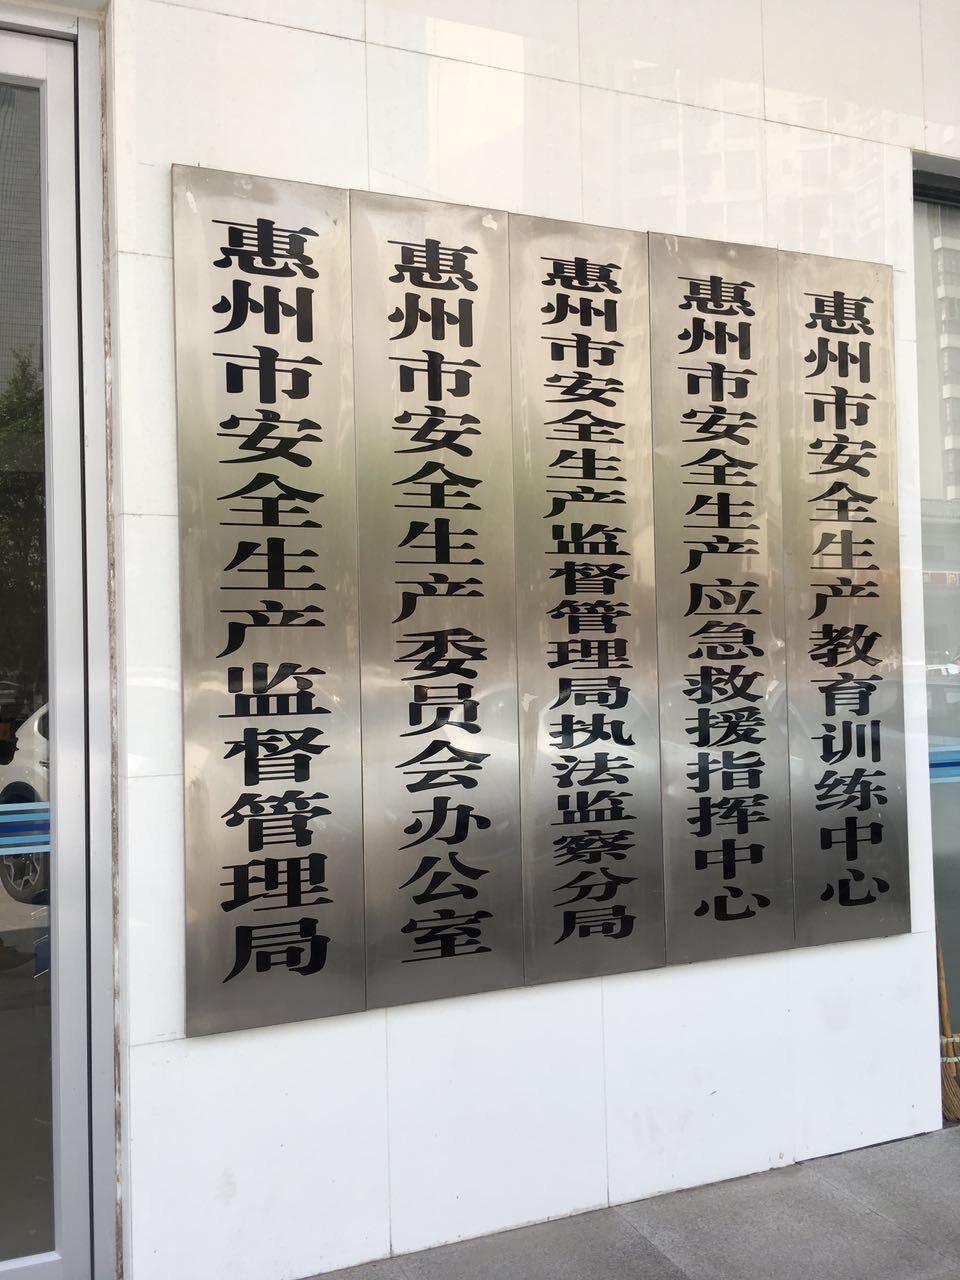 惠州市安全生产监督管理局
惠州市安全生产委员会办公室
惠州市安全生产监督管理局执法监察分局
惠州市安全生产应急救援指挥中心
惠州市安全生产教育训练中心